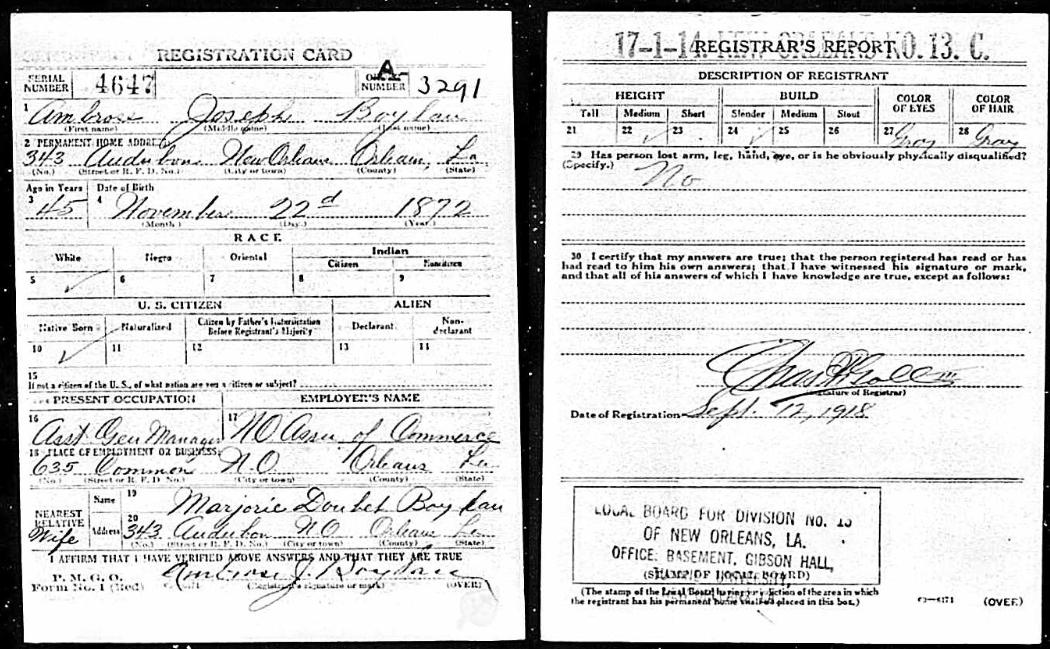 REGISTRATION CARD
SERIAL NUMBER 4647 ORDER NUMBER A-3291
1 Ambrose Joseph Boylan
(First name) (Middle name) (Last name)
2 PERMANENT HOME ADDRESS:
343 Audubon New Orleans Orleans La
(No.) (Street or R. F. D. No.) (City or town) (County) (State)
Age in Years Date of Birth
3 45 4 November 22d 1872
(Month.) (Day.) (Year.)
RACE
White Negro Oriental Indian
Citizen Noncitizen
5 ✓ 6 7 8 9
U. S. CITIZEN ALIEN
Native Born Naturalized Citizen by Father's Naturalization Before Registrant's Majority Declarant Non-declarant
10 ✓ 11 12 13 14
15
If not a citizen of the U. S., of what nation are you a citizen or subject?
PRESENT OCCUPATION EMPLOYER'S NAME
16 Asst Gen Manager 17 NO Assn of Commerce
18 PLACE OF EMPLOYMENT OR BUSINESS:
635 Common N.O Orleans La
(No.) (Street or R. F. D. No.) (City or town) (County) (State)
NEAREST RELATIVE Name 19 Marjorie Boylan
Wife Address 20 343 Audubon N.O Orleans La
(No.) (Street or R. F. D. No.) (City or town) (County) (State)
I AFFIRM THAT I HAVE VERIFIED ABOVE ANSWERS AND THAT THEY ARE TRUE
P. M. G. O.
Form No. 1 (Red) Ambrose J. Boylan
(Registrant's signature or mark) (OVER)
17-1-14. NEW ORLEANS NO. 13. C.
REGISTRAR'S REPORT
DESCRIPTION OF REGISTRANT
HEIGHT BUILD COLOR OF EYES COLOR OF HAIR
Tall Medium Short Slender Medium Stout
21 22 ✓ 23 24 ✓ 25 26 27 Gray 28 Gray
29 Has person lost arm, leg, hand, eye, or is he obviously physically disqualified?
(Specify.) No
30 I certify that my answers are true; that the person registered has read or has
had read to him his own answers; that I have witnessed his signature or mark,
and that all of his answers of which I have knowledge are true, except as follows:
(Signature of Registrar)
Date of Registration Sept. 12, 1918
LOCAL BOARD FOR DIVISION NO. 13
OF NEW ORLEANS, LA.
OFFICE: BASEMENT, GIBSON HALL,
(STAMP OF LOCAL BOARD)
(The stamp of the Local Board having jurisdiction of the area in which
the registrant has his permanent home shall be placed in this box.)
03—6171 (OVER)